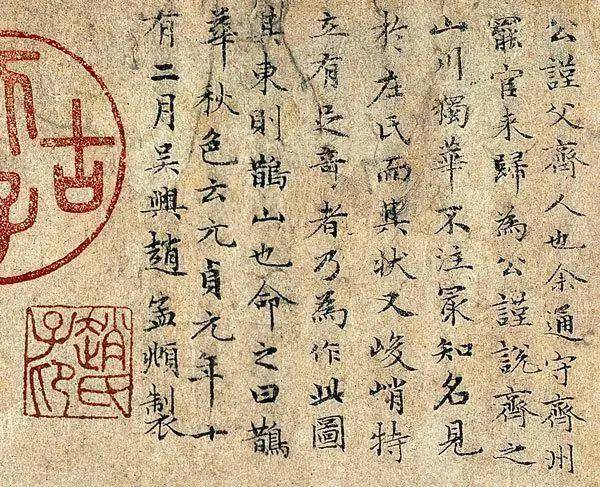 公謹父齊人也余通守齊州
罷官来歸為公謹說齊之
山川獨華不注冣知名見
於左氏而其状又峻峭特
立有足奇者乃為作此圖
其東則鵲山也命之曰鵲
華秋色云元貞元年十
有二月吳興趙孟頫製
趙氏子昂
古